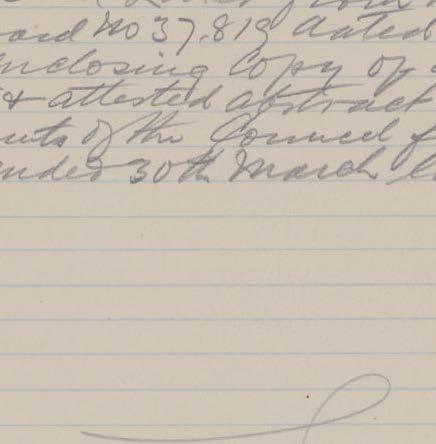 oard No 37,819 dated
Inclosing Copy of
& attested abstract
unts of the Council f
ended 30th March